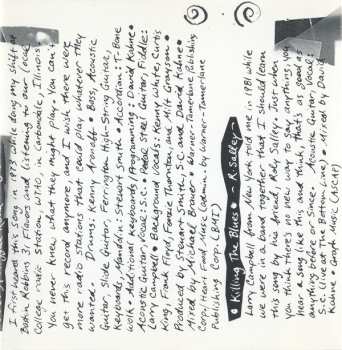 I first heard this song in 1983 while doing my shift of
and Listening to our local
college radio station, in Carbondale, Illinois.
You never knew what they might play. You can't
get this record anymore, and I wish there were
more radio stations that could play whatever they
wanted. Drums: Kenny Aronoff • Bass, Acoustic
Guitar, Slide Guitar, Ferrington High-String Guitar,
Keyboards, Mandolin: Steuart Smith • Accordian: T-Bone
Wolk • Additional Keyboards/Programming: David Kahne •
Acoustic Guitar, Vocal: S.C. • Pedal Steel Guitar, Fiddle:
Larry Campbell • Background vocals: Kenny White, Curtis
King, Frank Floyd, Fonzi Thornton, and Milt Grayson •
Produced by Steuart Smith, S.C. and David Kahne •
Mixed by Michael Brauer • Warner-Tamerlane Publishing
Corp./Heart Food Music (admin. by Warner-Tamerlane
Publishing Corp. (BMI)
• Killing The Blues • - R. Salley -
Larry Campbell from New York told me in 1981 while
we were in a band together that I should learn
this song by his friend, Roly Salley. Just when
you think there's no new way to say anything, you
hear a song like this and think that's as good as
anything before or since. Acoustic Guitar, Vocal:
S.C. (live at the Bottom Line) • Mixed by David
Kahne • Music (ASCAP)